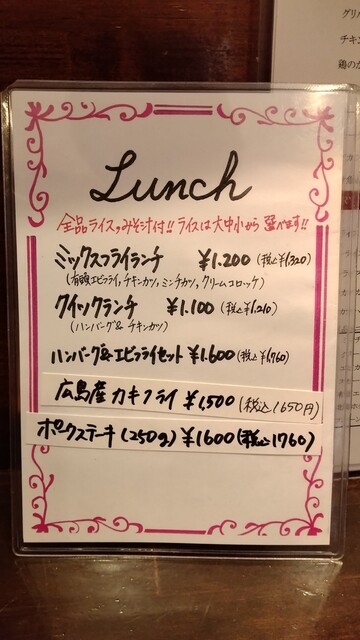 グリル
チキン
鶏のか
Lunch
全品ライス、みそ汁付!! ライスは大中小から選べます!!
ミックスフライランチ ¥1.200 (税込¥1320)
(有頭エビフライ,チキンカツ,ミンチカツ,クリームコロッケ)
クイックランチ ¥1.100 (税込¥1,210)
(ハンバーグ& チキンカツ)
ハンバーグ&エビフライセット ¥1.600 (税込¥1,760)
広島産 カキフライ ¥1,500 (税込1650円)
ポークステーキ(250g) ¥1600 (税込1760)